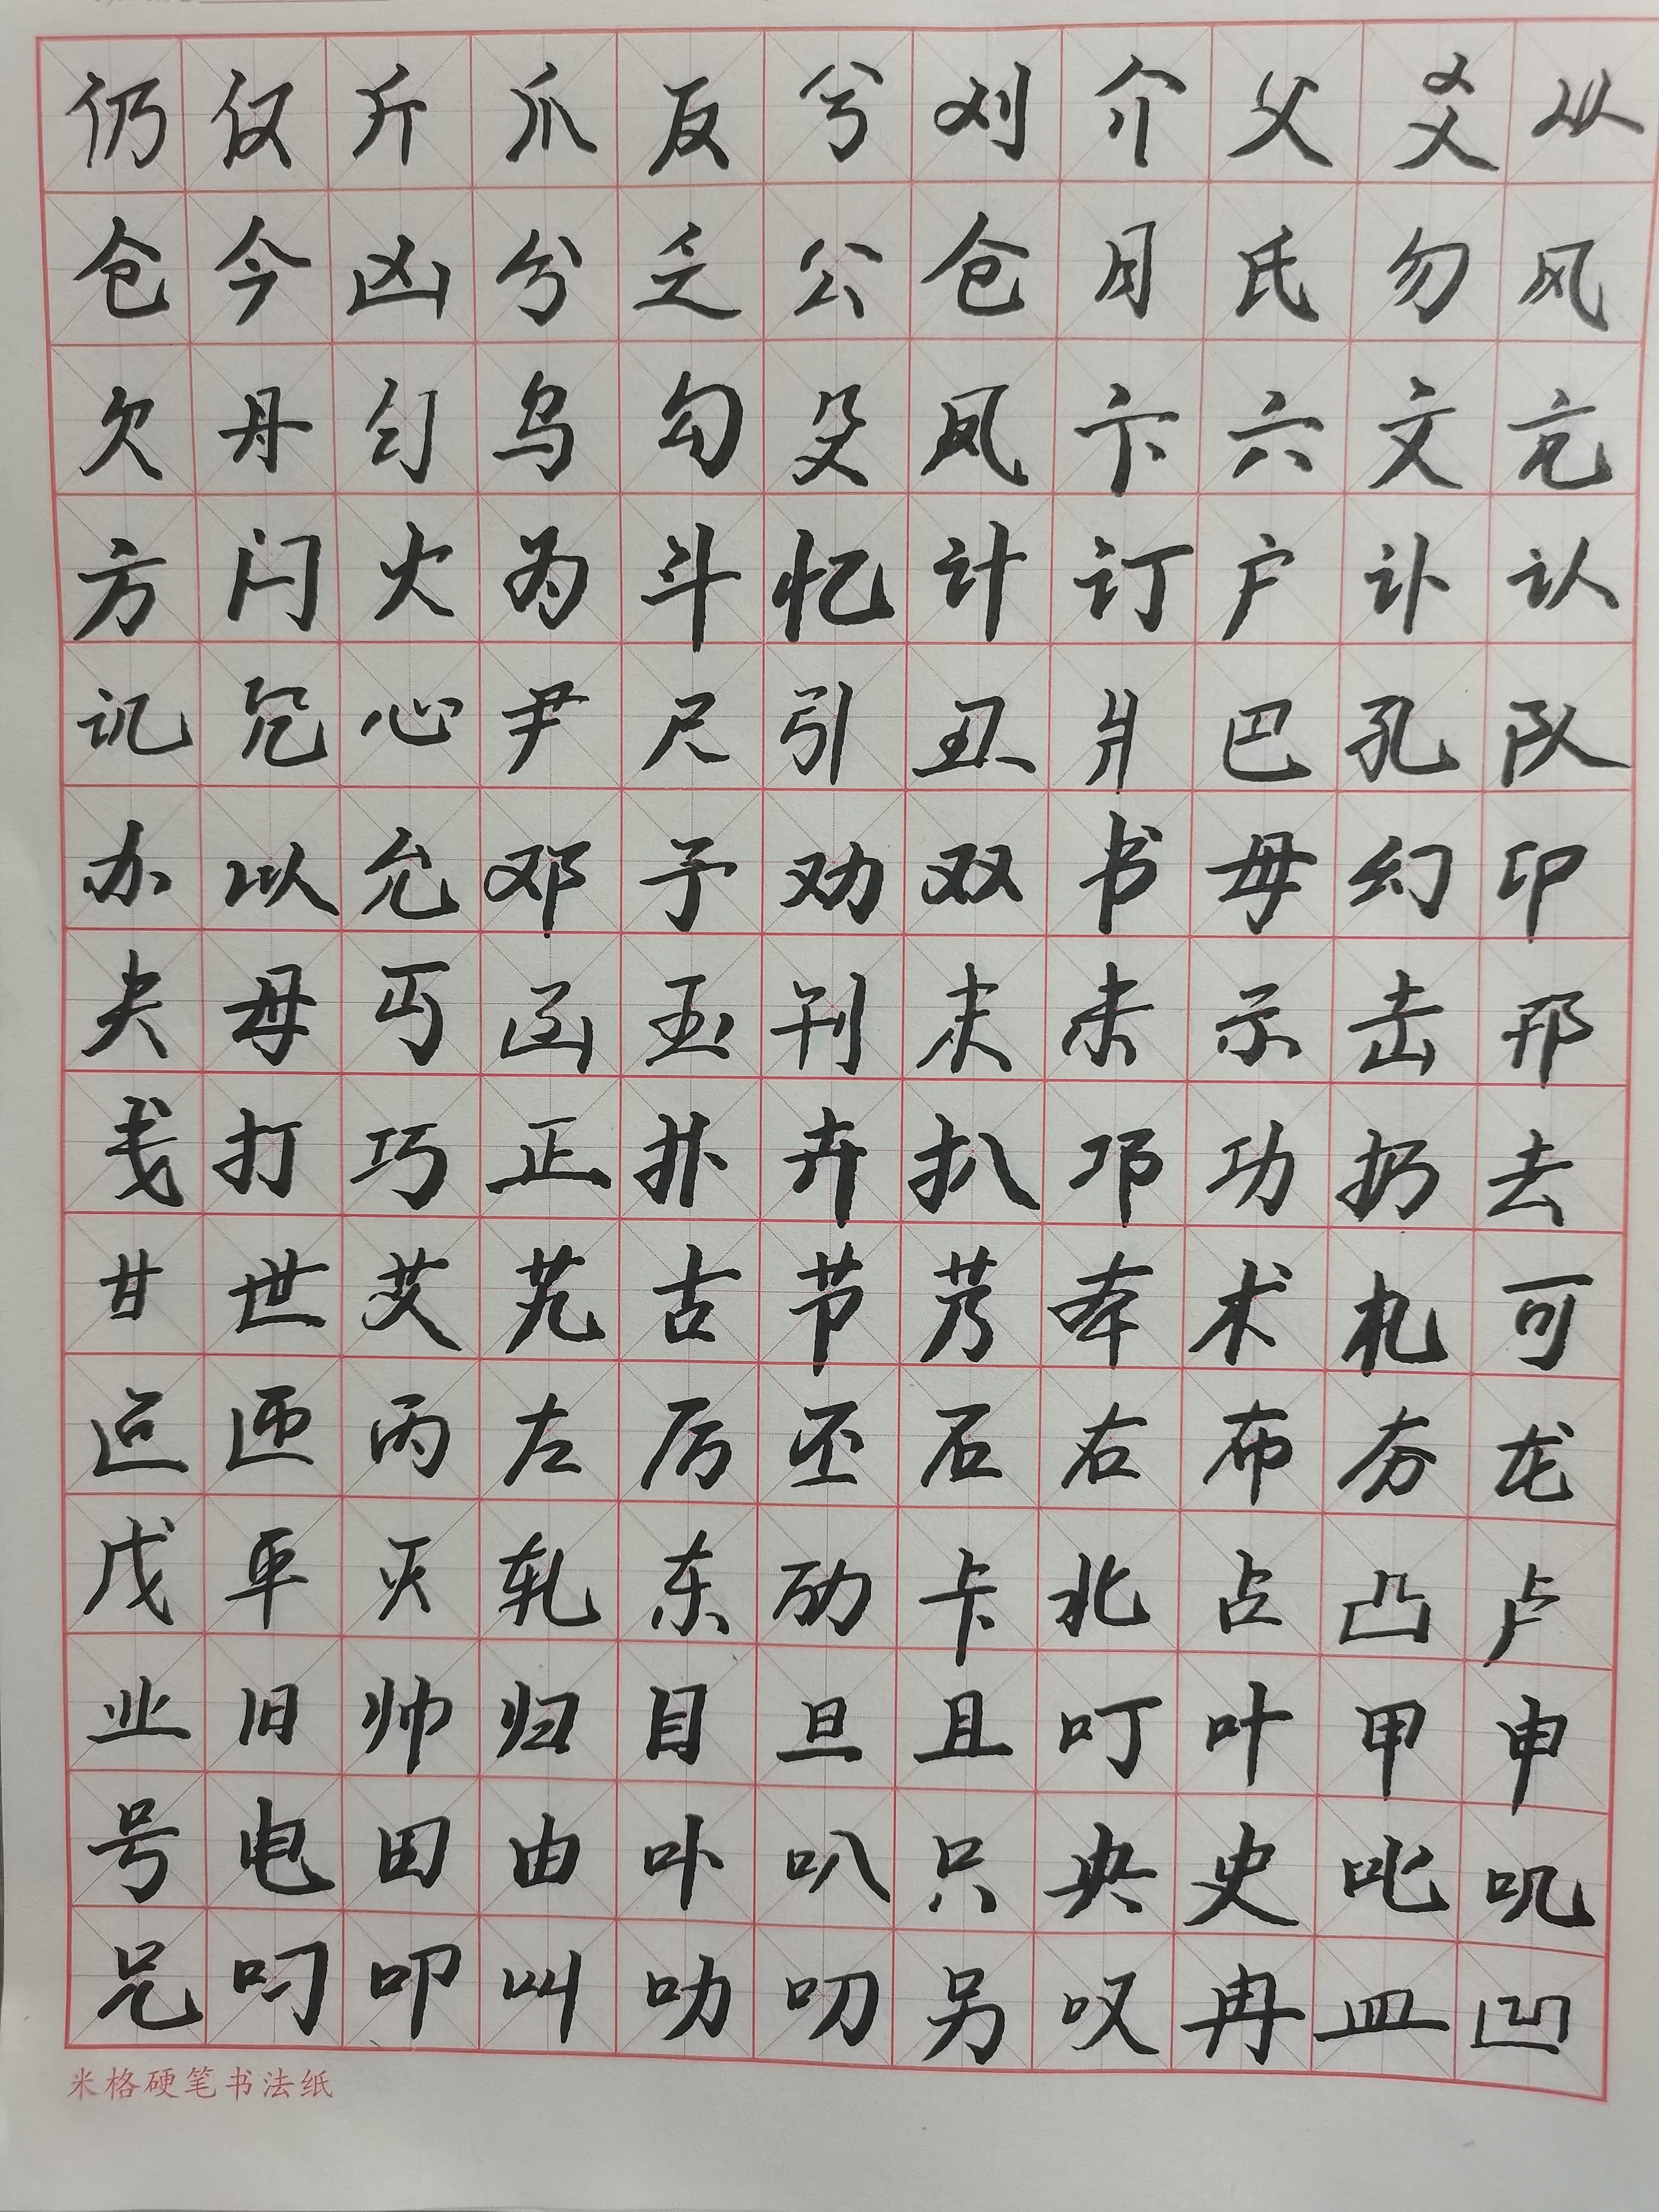 仍仅斤爪反兮刈介父爻从
仓今凶分乏公仓月氏勿风
欠丹匀乌勾殳凤卞六文亢
方闩火为斗忆计订户讣认
讥冗心尹尺引丑爿巴孔队
办以允邓予劝双书毋幻印
夫母丐击玉刊末未示击邗
戋打巧正扑卉扒邛功扔去
甘世艾艽古节芳本术札可
叵匝丙左厉丕石右布夯龙
戊平灭轧东劢卡北占凸卢
业旧帅归目旦且叮叶甲申
号电田由卟叭只央史叱叽
兄叼叩叫叻叨另叹冉皿凹
米格硬笔书法纸